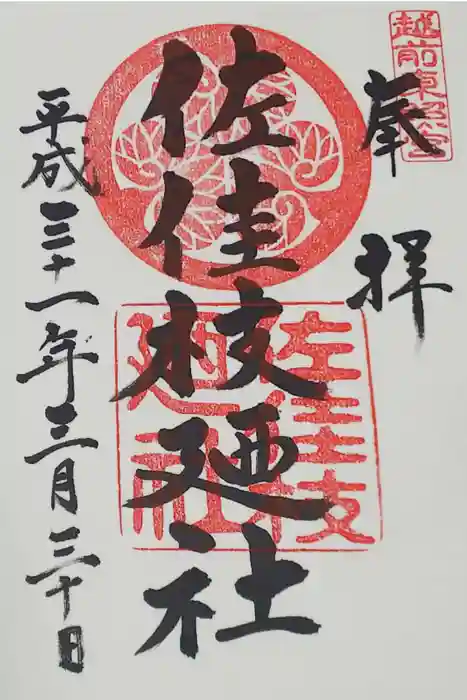 越前東照宮
奉拝
佐佳枝廼社
佐佳枝
廼社
平成三十一年三月三十日